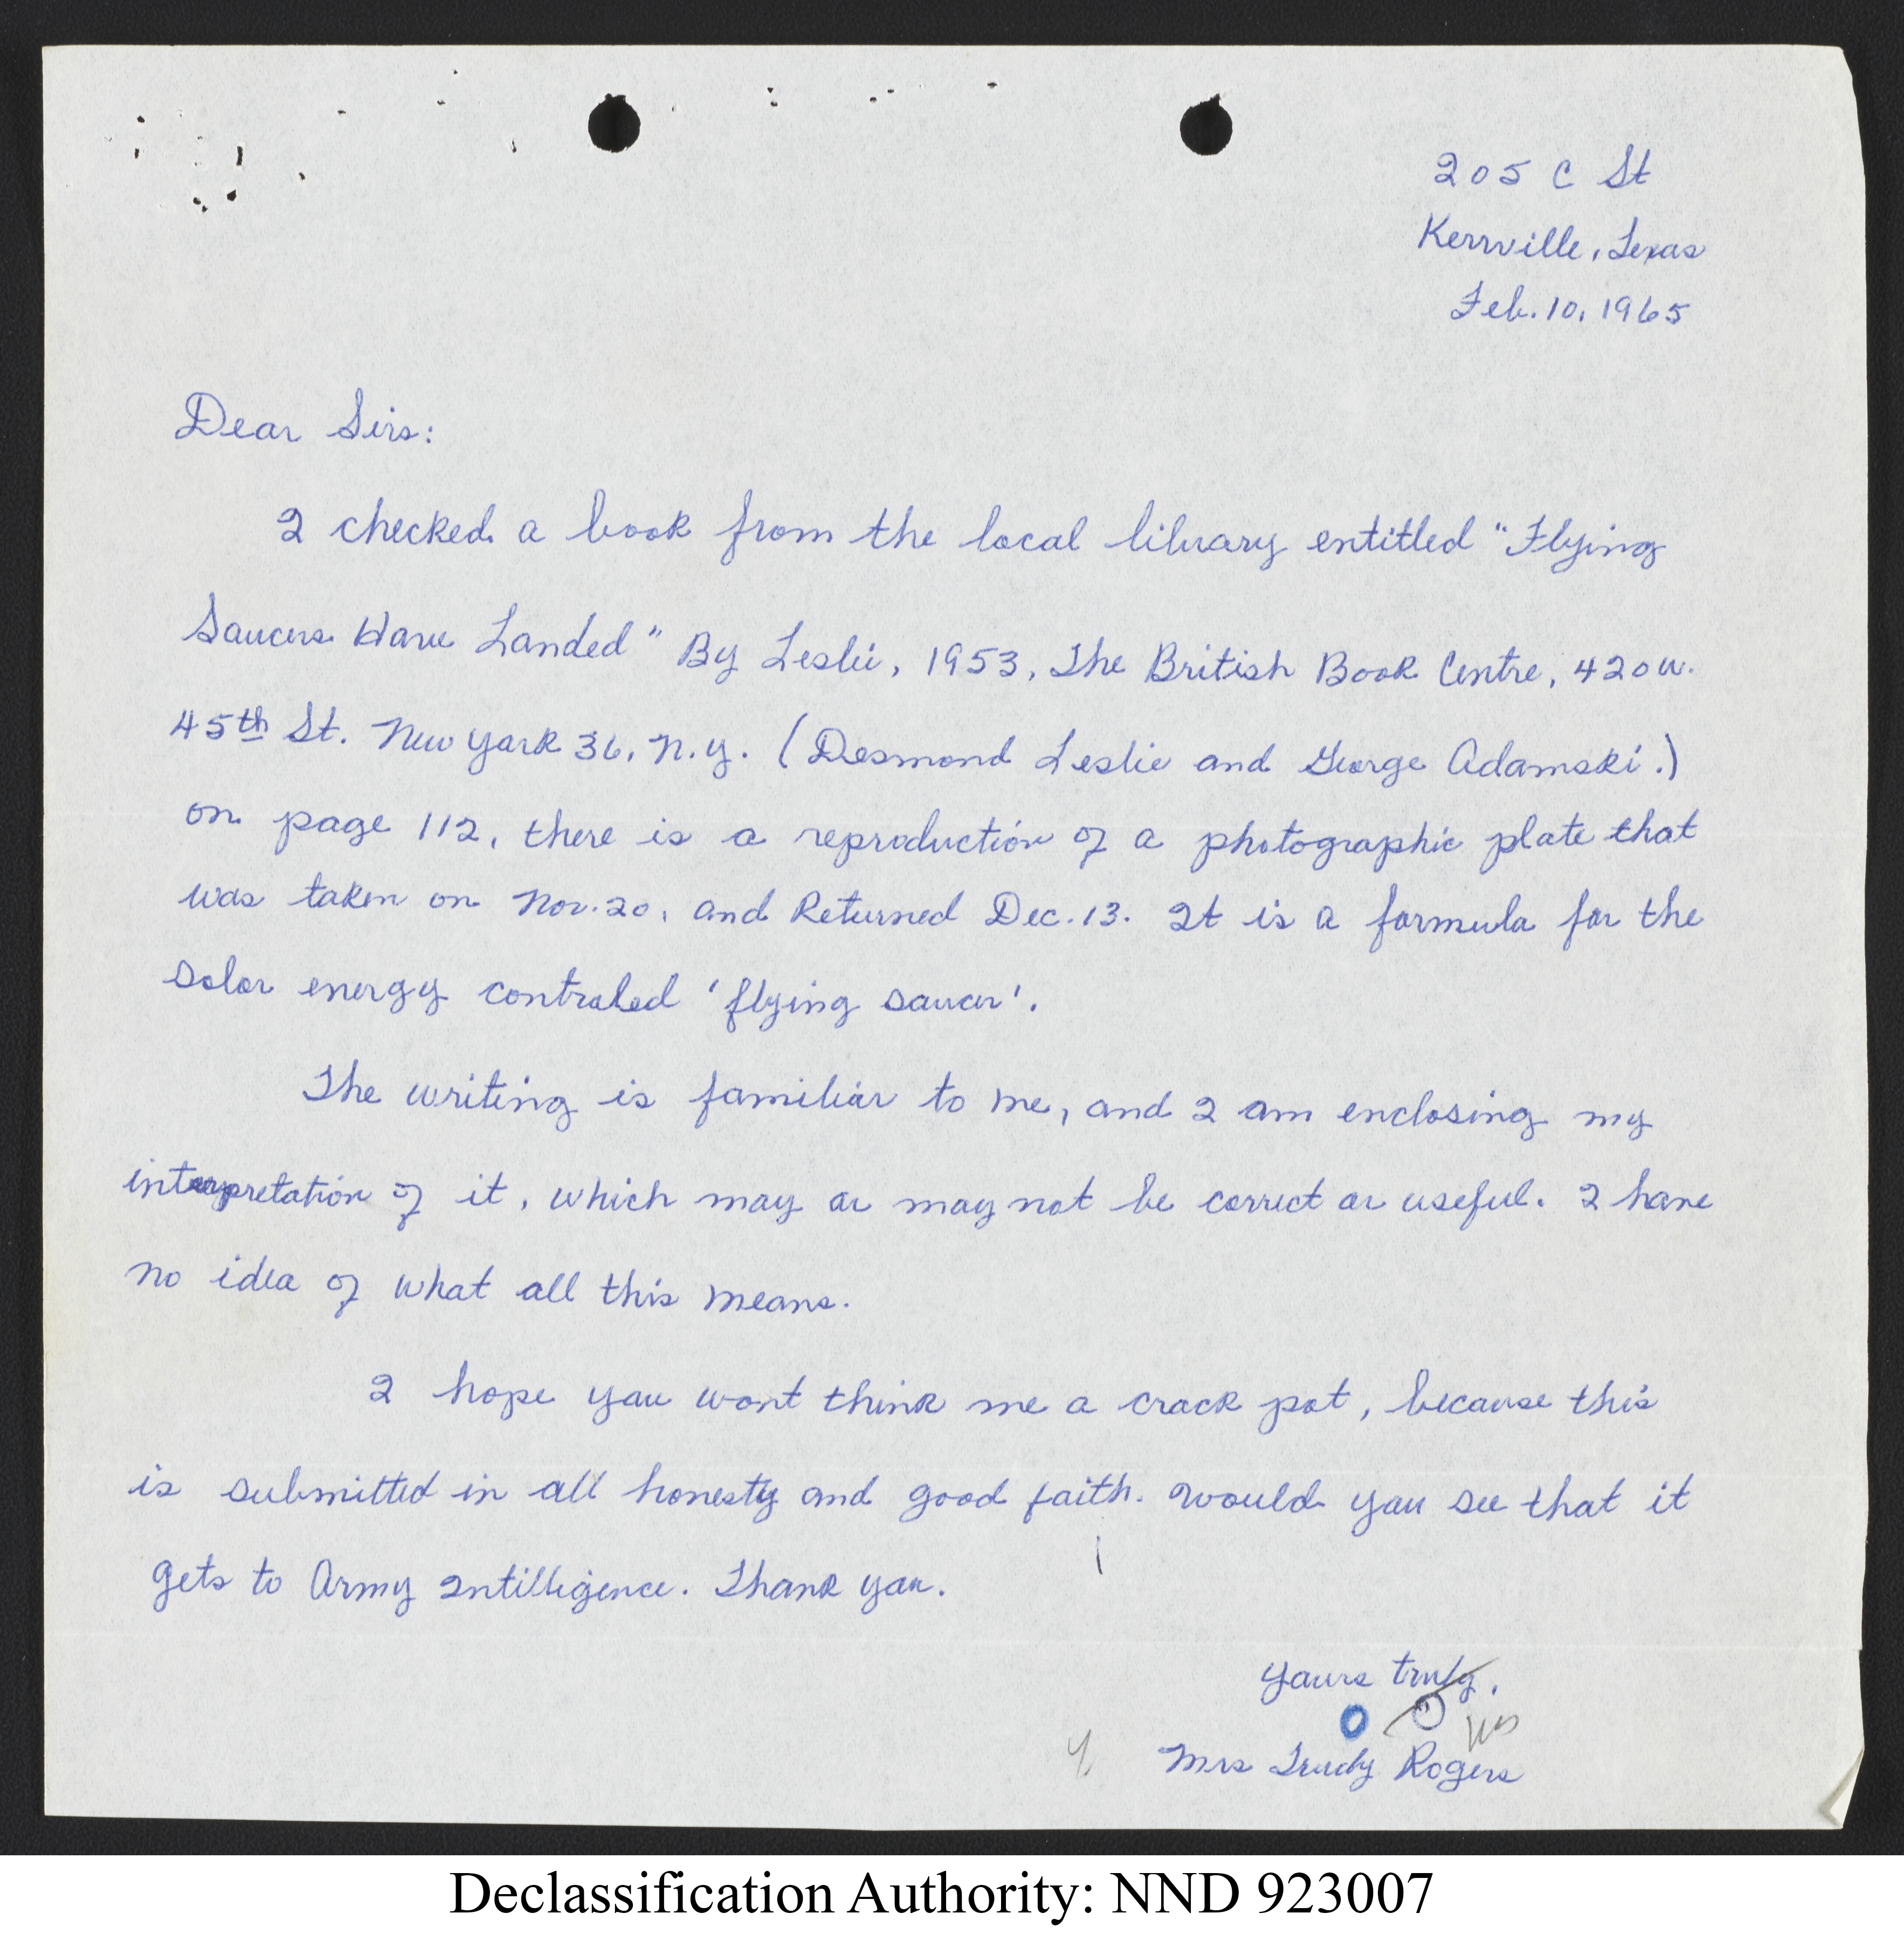 205 C St
Kerrville, Texas
Feb. 10, 1965
Dear Sirs:
I checked a book from the local library entitled "Flying
Saucers Have Landed" By Leslie, 1953, The British Book Centre, 420 W.
45th St. New York 36, N.Y. (Desmond Leslie and George Adamski.)
on page 112, there is a reproduction of a photographic plate that
was taken on Nov. 20, and Returned Dec. 13. It is a formula for the
solar energy controled 'flying saucer'.
The writing is familiar to me, and I am enclosing my
interpretation of it, which may or may not be correct or useful. I have
no idea of what all this means.
I hope you wont think me a crack pot, because this
is submitted in all honesty and good faith. Would you see that it
gets to Army Intilligence. Thank you.
Yours truly,
Mrs Trudy Rogers
Declassification Authority: NND 923007